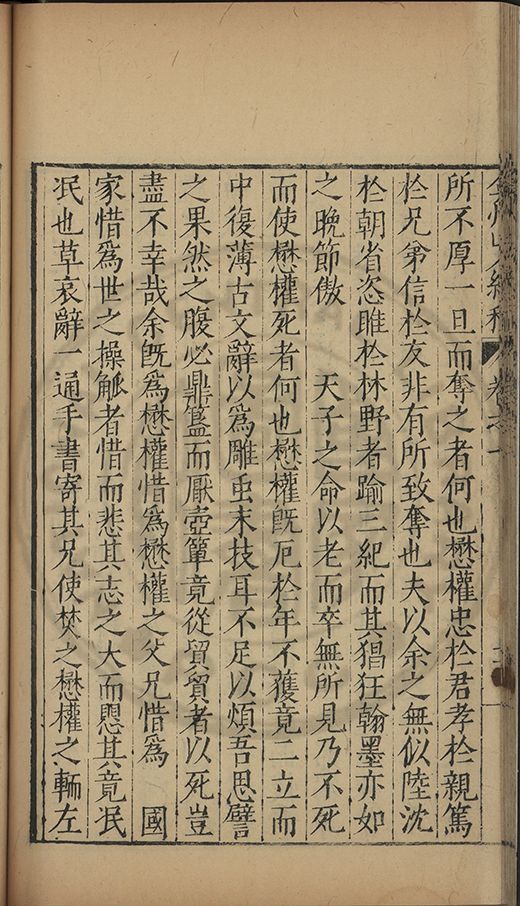 所不厚一旦而奪之者何也懋權忠扵君孝扵親篤
扵兄弟信扵友非有所致奪也夫以余之無似陸沈
扵朝省恣睢扵林野者踰三紀而其猖狂翰墨亦如
之晚節傲　天子之命以老而卒無所見乃不死
而使懋權死者何也懋權旣厄扵年不獲竟二立而
中復薄古文辭以爲雕虫末技耳不足以煩吾思譬
之果然之腹必鼎簋而厭壺簞竟從貿貿者以死豈
盡不幸哉余旣爲懋權惜爲懋權之父兄惜爲　國
家惜爲世之操觚者惜而悲其志之大而愳其竟泯
泯也草哀辭一通手書寄其兄使焚之懋權之輀左